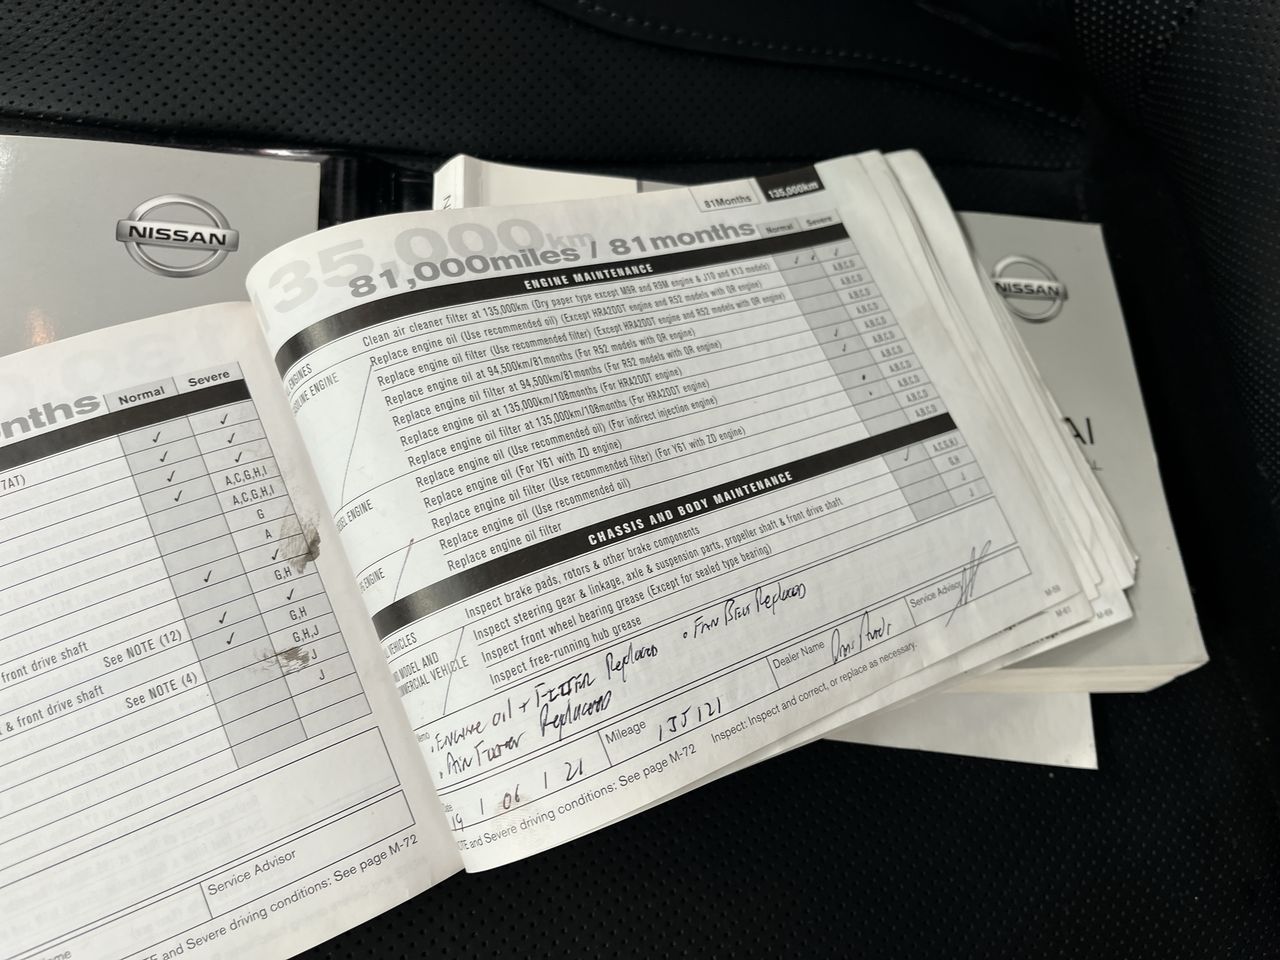 NISSAN
nths
Normal
Severe
7AT)
A,C,G,H,I
A,C,G,H,I
G
A
G,H
G,H
front drive shaft
See NOTE (12)
G,H,J
J
& front drive shaft
See NOTE (4)
J
Service Advisor
and Severe driving conditions: See page M-72
81Months
135,000km
135,000km
81,000miles / 81months
Normal
Severe
ENGINE MAINTENANCE
Clean air cleaner filter at 135,000km (Dry paper type except M9R and R9M engine & J10 and K13 models)
ENGINES
Replace engine oil (Use recommended oil) (Except HRA2DDT engine and R52 models with QR engine)
A,B,C,D
Replace engine oil filter (Use recommended filter) (Except HRA2DDT engine and R52 models with QR engine)
A,B,C,D
Replace engine oil at 94,500km/81months (For R52 models with QR engine)
A,B,C,D
Replace engine oil filter at 94,500km/81months (For R52 models with QR engine)
A,B,C,D
Replace engine oil at 135,000km/108months (For HRA2DDT engine)
A,B,C,D
Replace engine oil filter at 135,000km/108months (For HRA2DDT engine)
A,B,C,D
Replace engine oil (Use recommended oil) (For Indirect injection engine)
A,B,C,D
Replace engine oil (For Y61 with ZD engine)
A,B,C,D
Replace engine oil filter (Use recommended filter) (For Y61 with ZD engine)
A,B,C,D
ENGINE
Replace engine oil (Use recommended oil)
A,B,C,D
Replace engine oil filter
A,B,C,D
CHASSIS AND BODY MAINTENANCE
Inspect brake pads, rotors & other brake components
A,C,G,H,I
VEHICLES
Inspect steering gear & linkage, axle & suspension parts, propeller shaft & front drive shaft
G,H
MODEL AND
Inspect front wheel bearing grease (Except for sealed type bearing)
J
VEHICLE
Inspect free-running hub grease
J
Memo
• ENGINE OIL + FILTER Replaced • FAN BELT Replaced
• Air Filter Replaced
Date
19 / 06 / 21
Mileage
135121
Dealer Name
Service Advisor
and Severe driving conditions: See page M-72
Inspect: Inspect and correct, or replace as necessary.
M-59
M-61
M-69
NISSAN